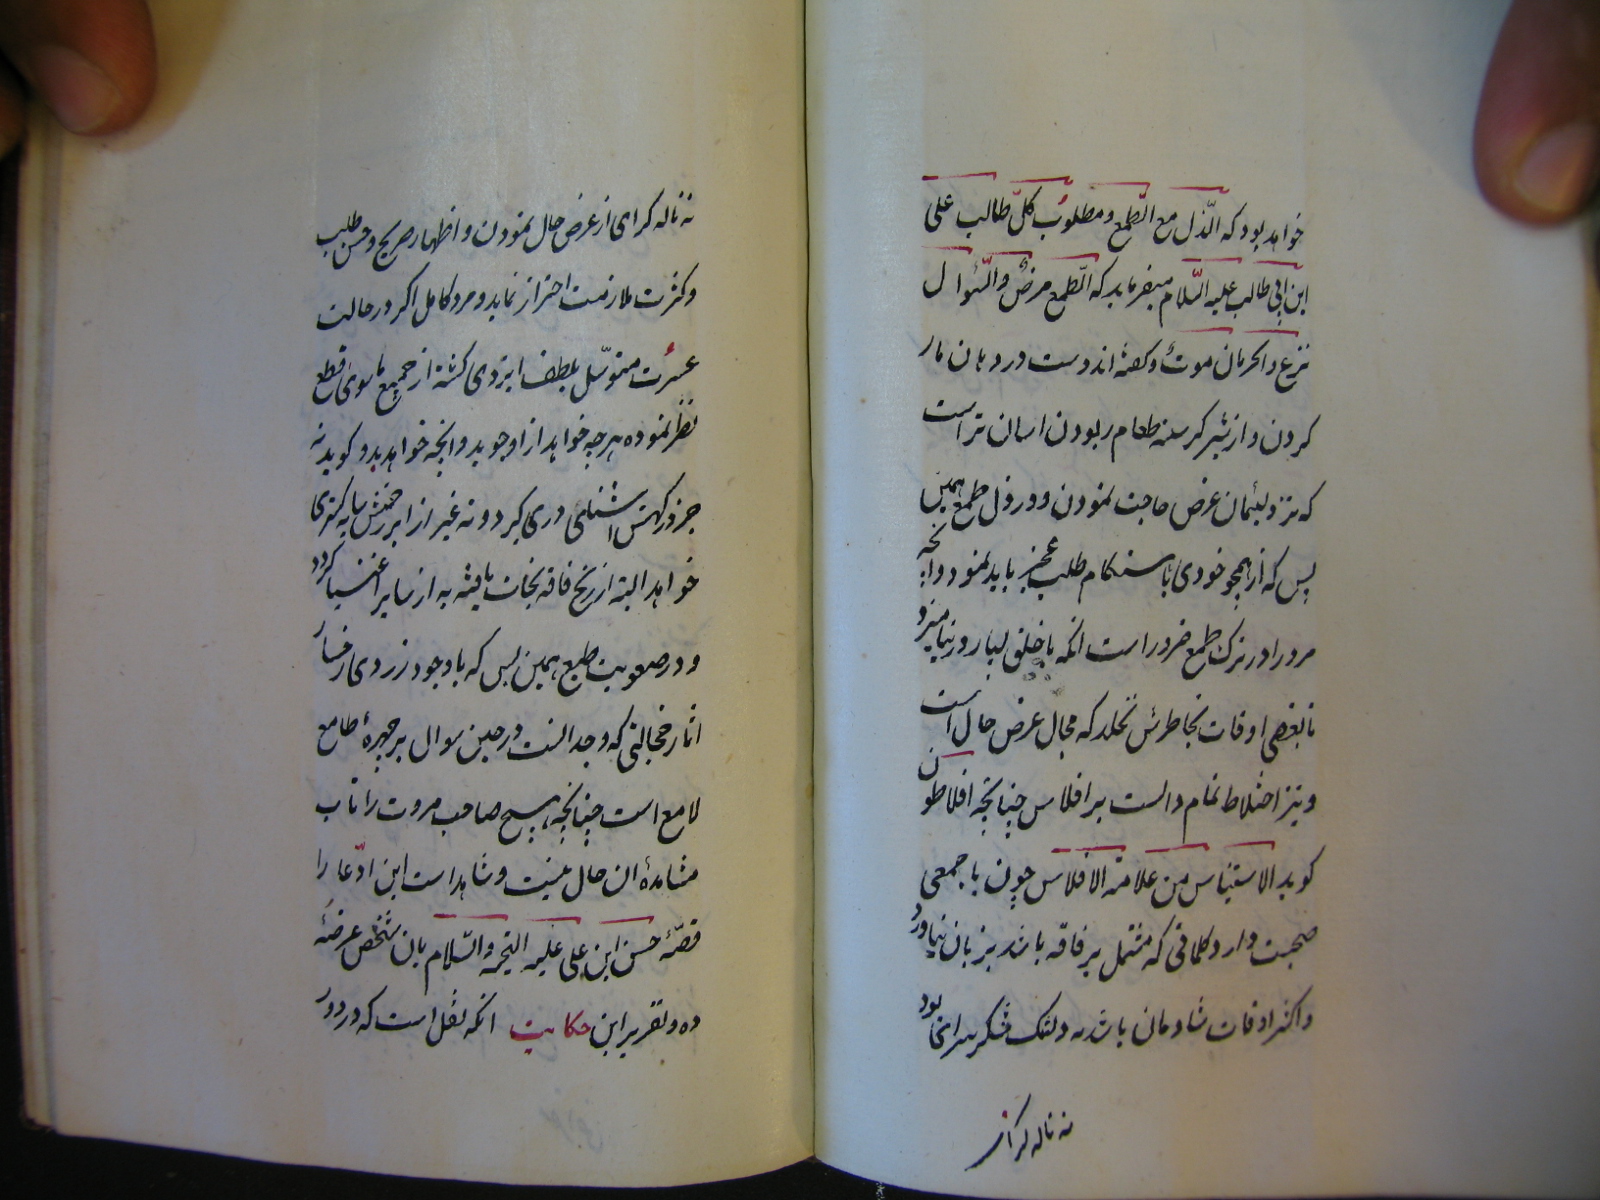 خواهد بود که الذل مع الطمع و مطلوب کل طالب علی
ابن ابی طالب علیه السلام میفرماید که الطمع مرض والسؤال
نزع والحرمان موت و گفته اند دست در دهان مار
کردن و از شیر گرسنه طعام ربودن اسان تر است
که نزد لئیمان عرض حاجت نمودن و در ذل طمع همین
بس که از همچو خودی باستکام طلب چیز باید نمود و انچه
مرد را در ترک طمع ضرور است انکه با خلق بسیار در نیامیزد
تا بعضی اوقات بخاطرش نخلد که مجال عرض حال است
و نیز اختلاط تمام دالست بر افلاس چنانچه افلاطون
کوید الاستیناس من علامة الافلاس چون با جمعی
صحبت دارد کلماتی که مشتمل بر فاقه باشد بر زبان نیاورد
و اکثر اوقات شادمان باشد نه دلتنک شکر سرا بود
نه ناله کر از
نه ناله کرای از عرض حال نمودن و اظهار صریح و حسن طلب
و کثرت ملازمت احتراز نماید و مرد کامل اکر در حالت
عسرت متوسل بلطف ایزدی کشته از جمیع ماسوی قطع
نظر نموده هرچه خواهد از او جوید و انچه خواهد بدو کوید نه
جز درکهش اشنای دری کردد و نه غیر از ابر رحمتش سایه کستری
خواهد البته از رنج فاقه نجات یافته به از سایر اغنیا کردد
و در صعوبت طمع همین بس که با وجود زردی رخسار
اثار خجالتی که وجدالست در حین سوال بر چهرهٔ طامع
لامع است چنانچه هیچ صاحب مروت را تاب
مشاهدهٔ ان حال نیست و شاهد است این ادعا را
قصهٔ حسن ابن علی علیه التحیة والسلام بان شخص عرضه
ده و تقریر این حکایت انکه نقل است که در دور